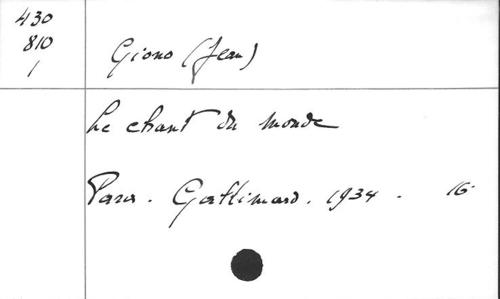 430
810
1
Giono (Jean)
Le chant du monde
Paris. Gallimard. 1934. 16°